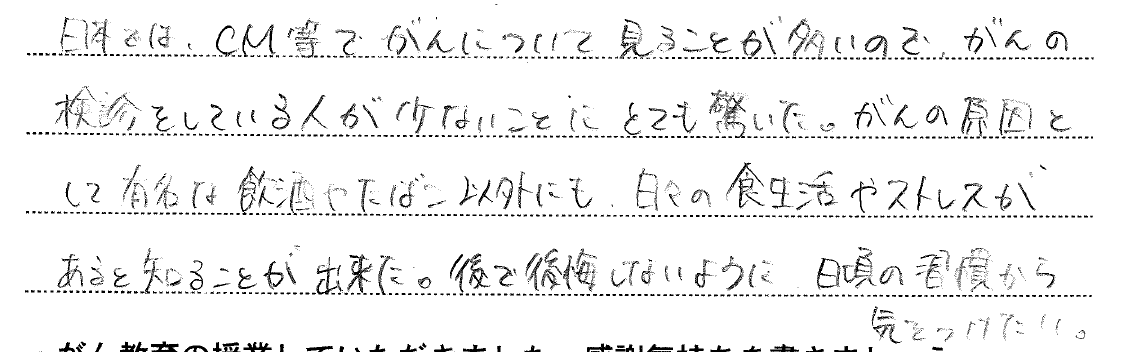 日本では、CM等でがんについて見ることが多いので、がんの
検診をしている人が少ないことにとても驚いた。がんの原因と
して有名な飲酒やたばこ以外にも、日々の食生活やストレスが
あると知ることが出来た。後で後悔しないように、日頃の習慣から
気をつけたい。